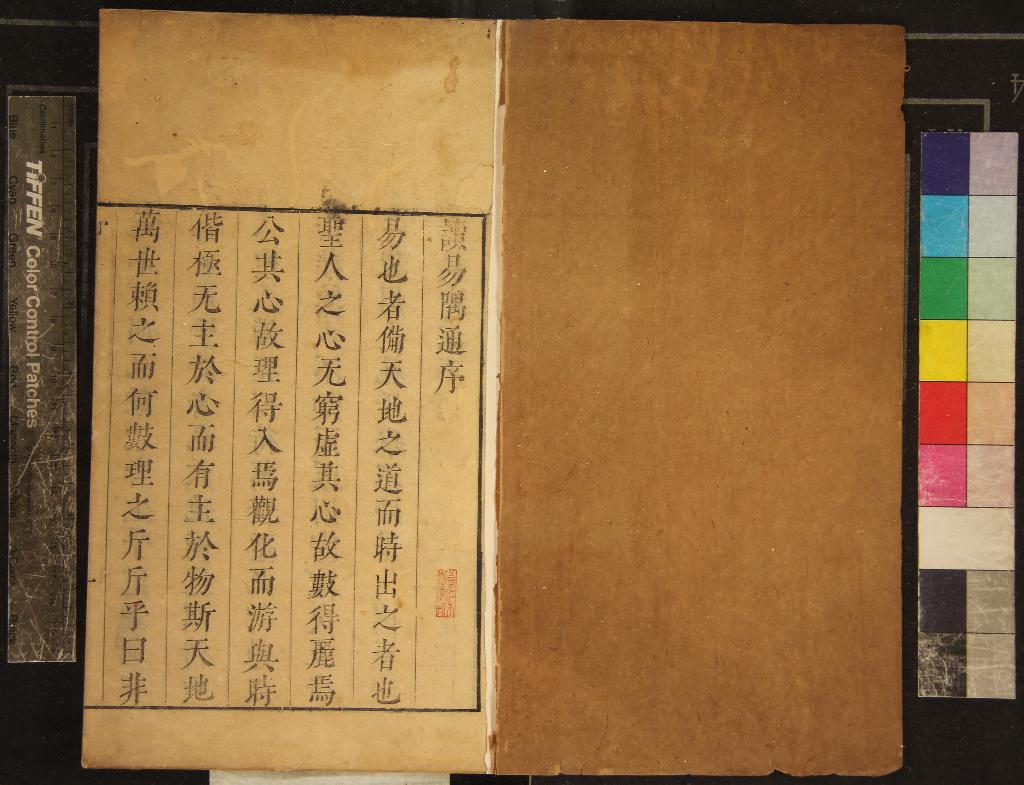 讀易隅通序
易也者備天地之道而時出之者也
聖人之心无窮虛其心故數得麗焉
公其心故理得入焉觀化而游與時
偕極无主於心而有主於物斯天地
萬世賴之而何數理之斤斤乎曰非
TIFFEN Color Control Patches
Centimetres
Blue Cyan Green Yellow